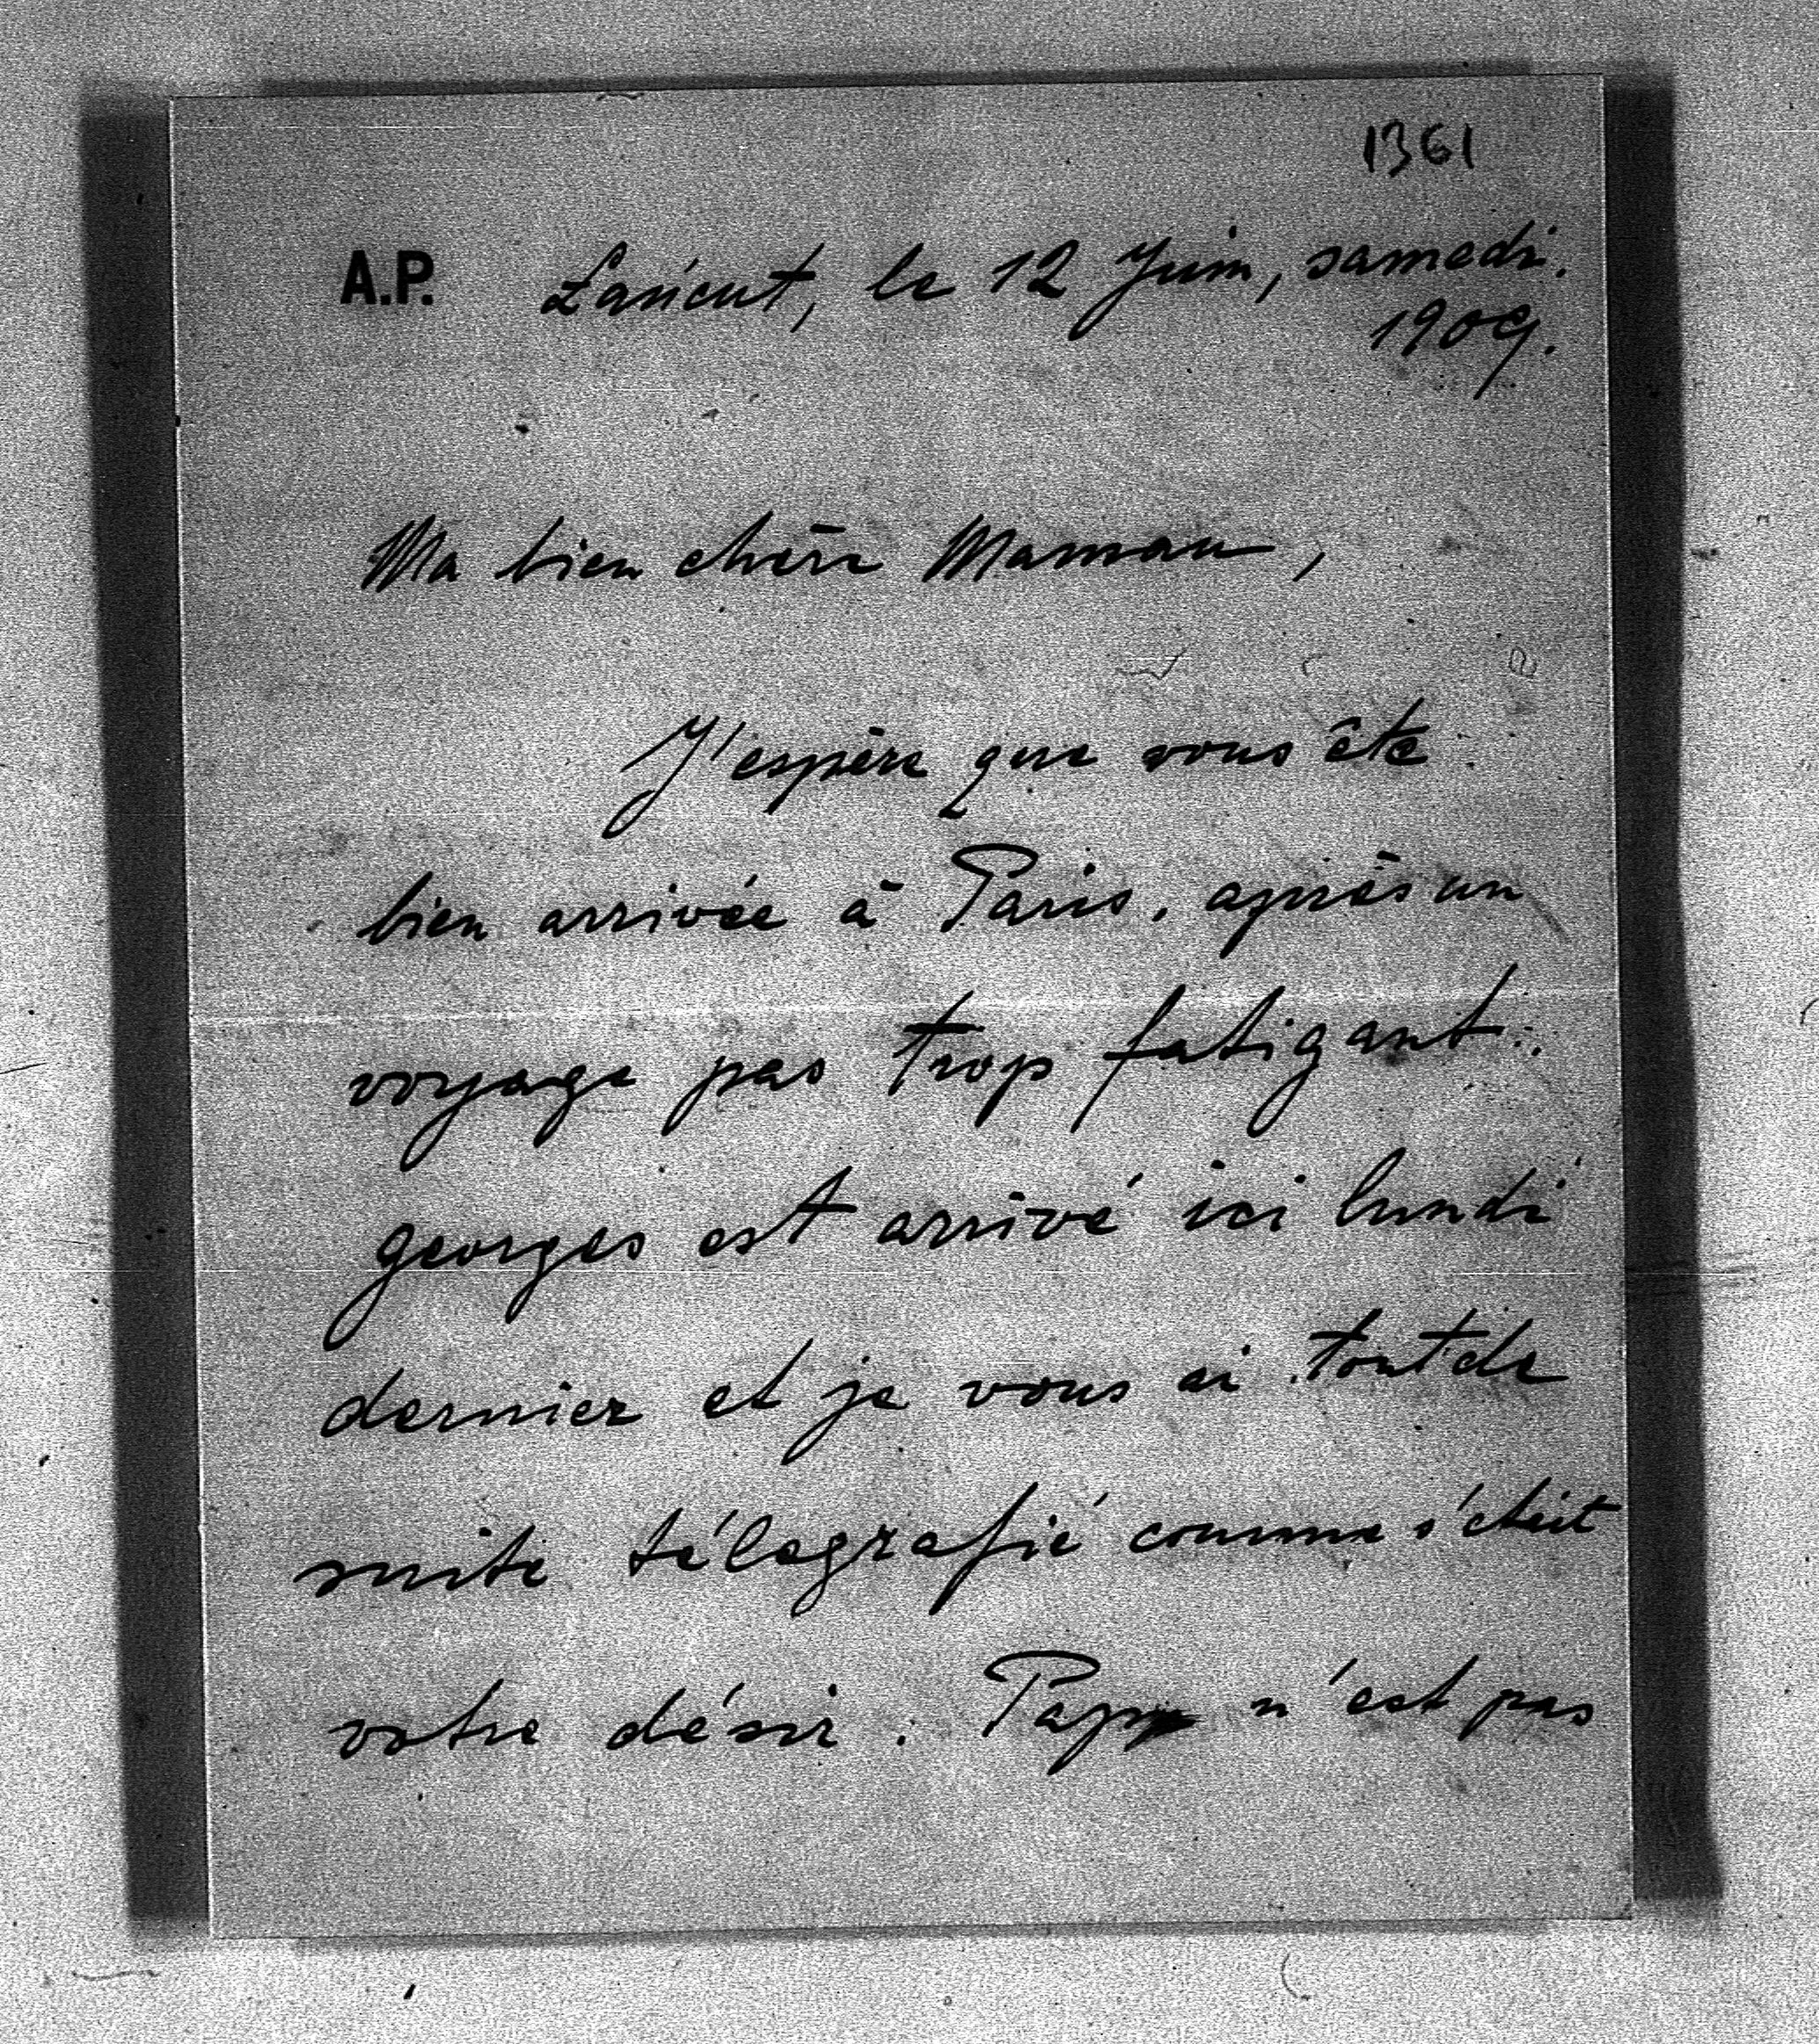 1361
A.P. Łańcut, le 12 Juin, samedi.
1909.
Ma bien chère Maman,
J'espère que vous ête
bien arrivée à Paris, après un
voyage pas trop fatigant.
Georges est arrivé ici lundi
dernier et je vous ai tout de
suite télégrafié comme s'était
votre désir. Papa n'est pas